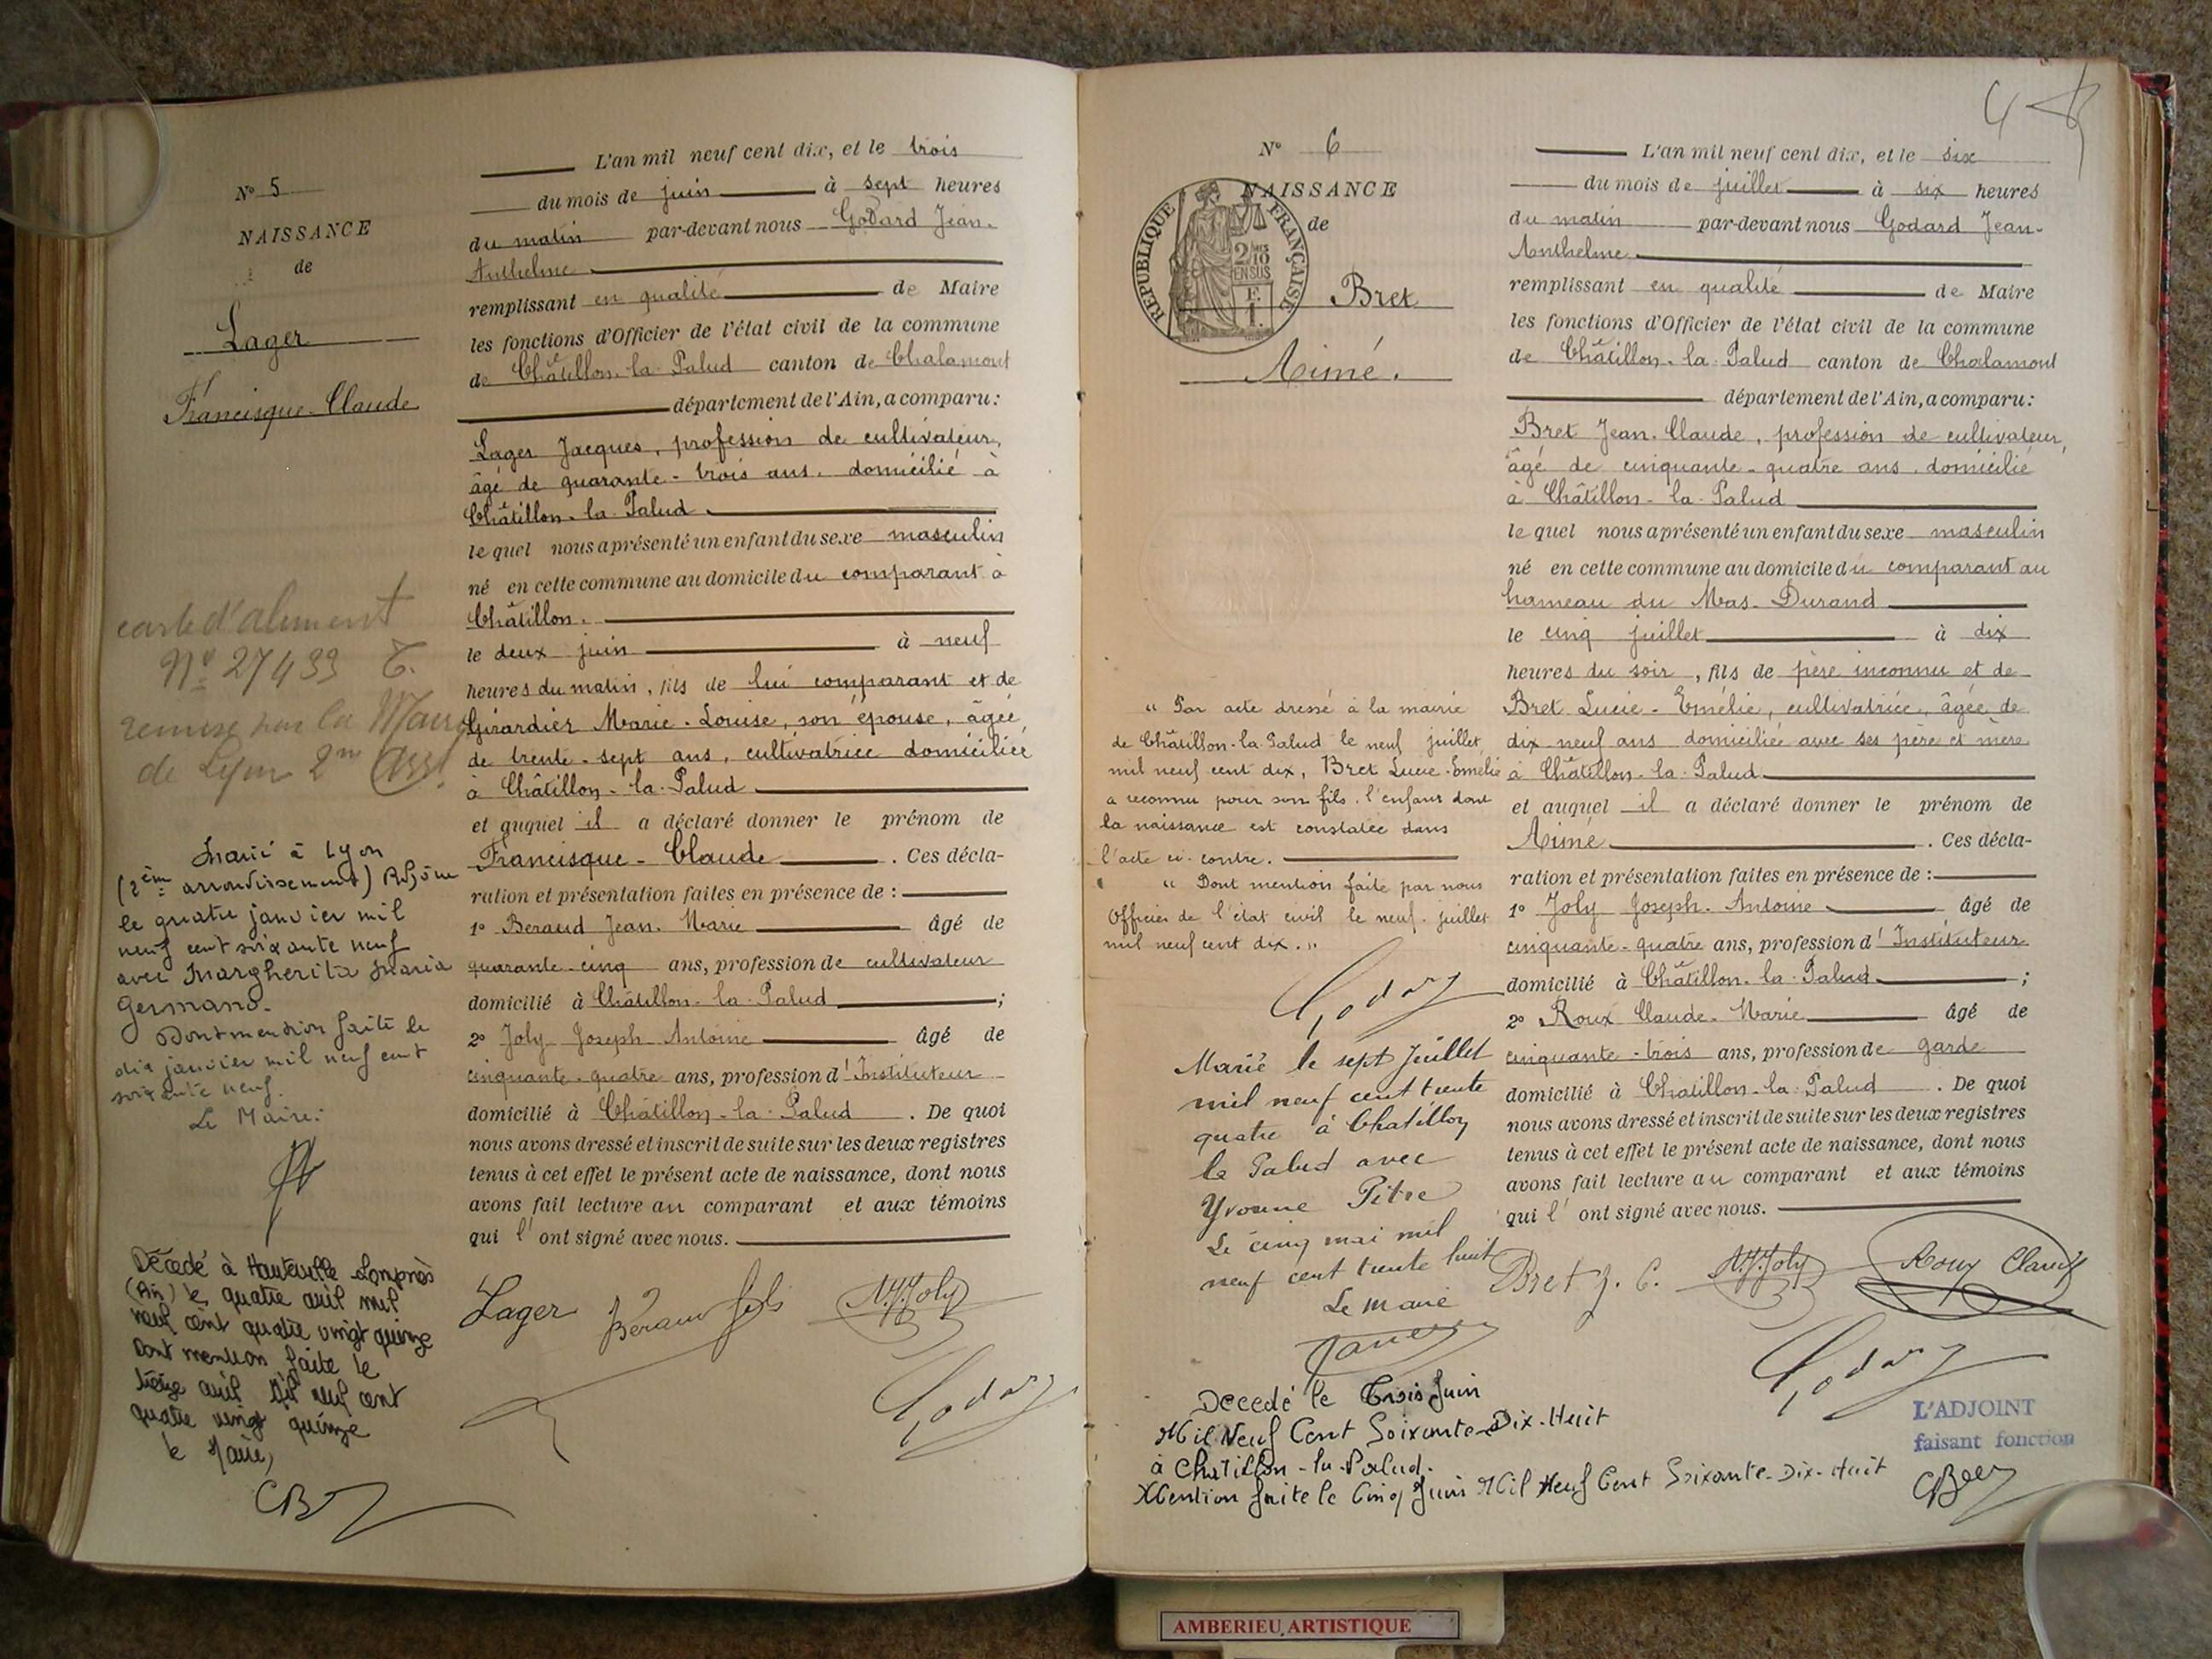 N° 5
NAISSANCE
de
Lager
Francisque-Claude
carte d'aliment
N° 27433 T.
remise par la Mairie
de Lyon 2me Arrt
Marié à Lyon
(2ème arrondissement) Rhône
le quatre janvier mil
neuf cent soixante neuf
avec Margherita Maria
Germano.
Dont mention faite le
dix janvier mil neuf cent
soixante neuf.
Le Maire:
Décédé à Hauteville-Lompnès
(Ain) le quatre avril mil
neuf cent quatre vingt quinze
Dont mention faite le
treize avril Mil neuf cent
quatre vingt quinze
le Maire,
L'an mil neuf cent dix, et le trois
du mois de juin à sept heures
du matin par-devant nous Godard Jean-
Anthelme
remplissant en qualité de Maire
les fonctions d'Officier de l'état civil de la commune
de Châtillon-la-Palud canton de Chalamont
département de l'Ain, a comparu:
Lager Jacques, profession de cultivateur,
âgé de quarante-trois ans, domicilié à
Châtillon-la-Palud
le quel nous a présenté un enfant du sexe masculin
né en cette commune au domicile du comparant à
Châtillon.
le deux juin à neuf
heures du matin, fils de lui comparant et de
Girardier Marie-Louise, son épouse, âgée
de trente-sept ans, cultivatrice domiciliée
à Châtillon-la-Palud
et auquel il a déclaré donner le prénom de
Francisque-Claude. Ces décla-
ration et présentation faites en présence de:
1° Beraud Jean-Marie âgé de
quarante-cinq ans, profession de cultivateur
domicilié à Châtillon-la-Palud;
2° Joly Joseph-Antoine âgé de
cinquante-quatre ans, profession d'Instituteur
domicilié à Châtillon-la-Palud. De quoi
nous avons dressé et inscrit de suite sur les deux registres
tenus à cet effet le présent acte de naissance, dont nous
avons fait lecture au comparant et aux témoins
qui l'ont signé avec nous.
Lager Béraud fils Joly
Godard
N° 6
NAISSANCE
de
RÉPUBLIQUE FRANÇAISE
2/10
EN SUS
Bret
Aimé.
"Par acte dressé à la mairie
de Châtillon-la-Palud le neuf juillet
mil neuf cent dix, Bret Lucie-Emélie
a reconnu pour son fils, l'enfant dont
la naissance est constatée dans
l'acte ci-contre.
"Dont mention faite par nous
Officier de l'état civil le neuf juillet
mil neuf cent dix."
Godard
Marié le sept Juillet
mil neuf cent trente
quatre à Chatillon
la Palud avec
Yvonne Pitre
Le cinq mai mil
neuf cent trente huit
Le maire
Décedé le Trois Juin
Mil Neuf Cent Soixante-Dix-Huit
à Chatillon-la-Palud.
Mention faite le Cinq Juin Mil Neuf Cent Soixante-Dix-Huit
L'an mil neuf cent dix, et le six
du mois de juillet à six heures
du matin par-devant nous Godard Jean-
Anthelme
remplissant en qualité de Maire
les fonctions d'Officier de l'état civil de la commune
de Châtillon-la-Palud canton de Chalamont
département de l'Ain, a comparu:
Bret Jean-Claude, profession de cultivateur,
âgé de cinquante-quatre ans, domicilié
à Châtillon-la-Palud
le quel nous a présenté un enfant du sexe masculin
né en cette commune au domicile du comparant au
hameau du Mas-Durand
le cinq juillet à dix
heures du soir, fils de père inconnu et de
Bret Lucie-Emélie, cultivatrice, âgée de
dix-neuf ans domiciliée avec ses père et mère
à Châtillon-la-Palud
et auquel il a déclaré donner le prénom de
Aimé. Ces décla-
ration et présentation faites en présence de:
1° Joly Joseph-Antoine âgé de
cinquante-quatre ans, profession d'Instituteur
domicilié à Châtillon-la-Palud;
2° Roux Claude-Marie âgé de
cinquante-trois ans, profession de garde
domicilié à Chatillon-la-Palud. De quoi
nous avons dressé et inscrit de suite sur les deux registres
tenus à cet effet le présent acte de naissance, dont nous
avons fait lecture au comparant et aux témoins
qui l'ont signé avec nous.
Bret J. C. Joly Roux Claude
Godard
L'ADJOINT
faisant fonction
AMBERIEU ARTISTIQUE